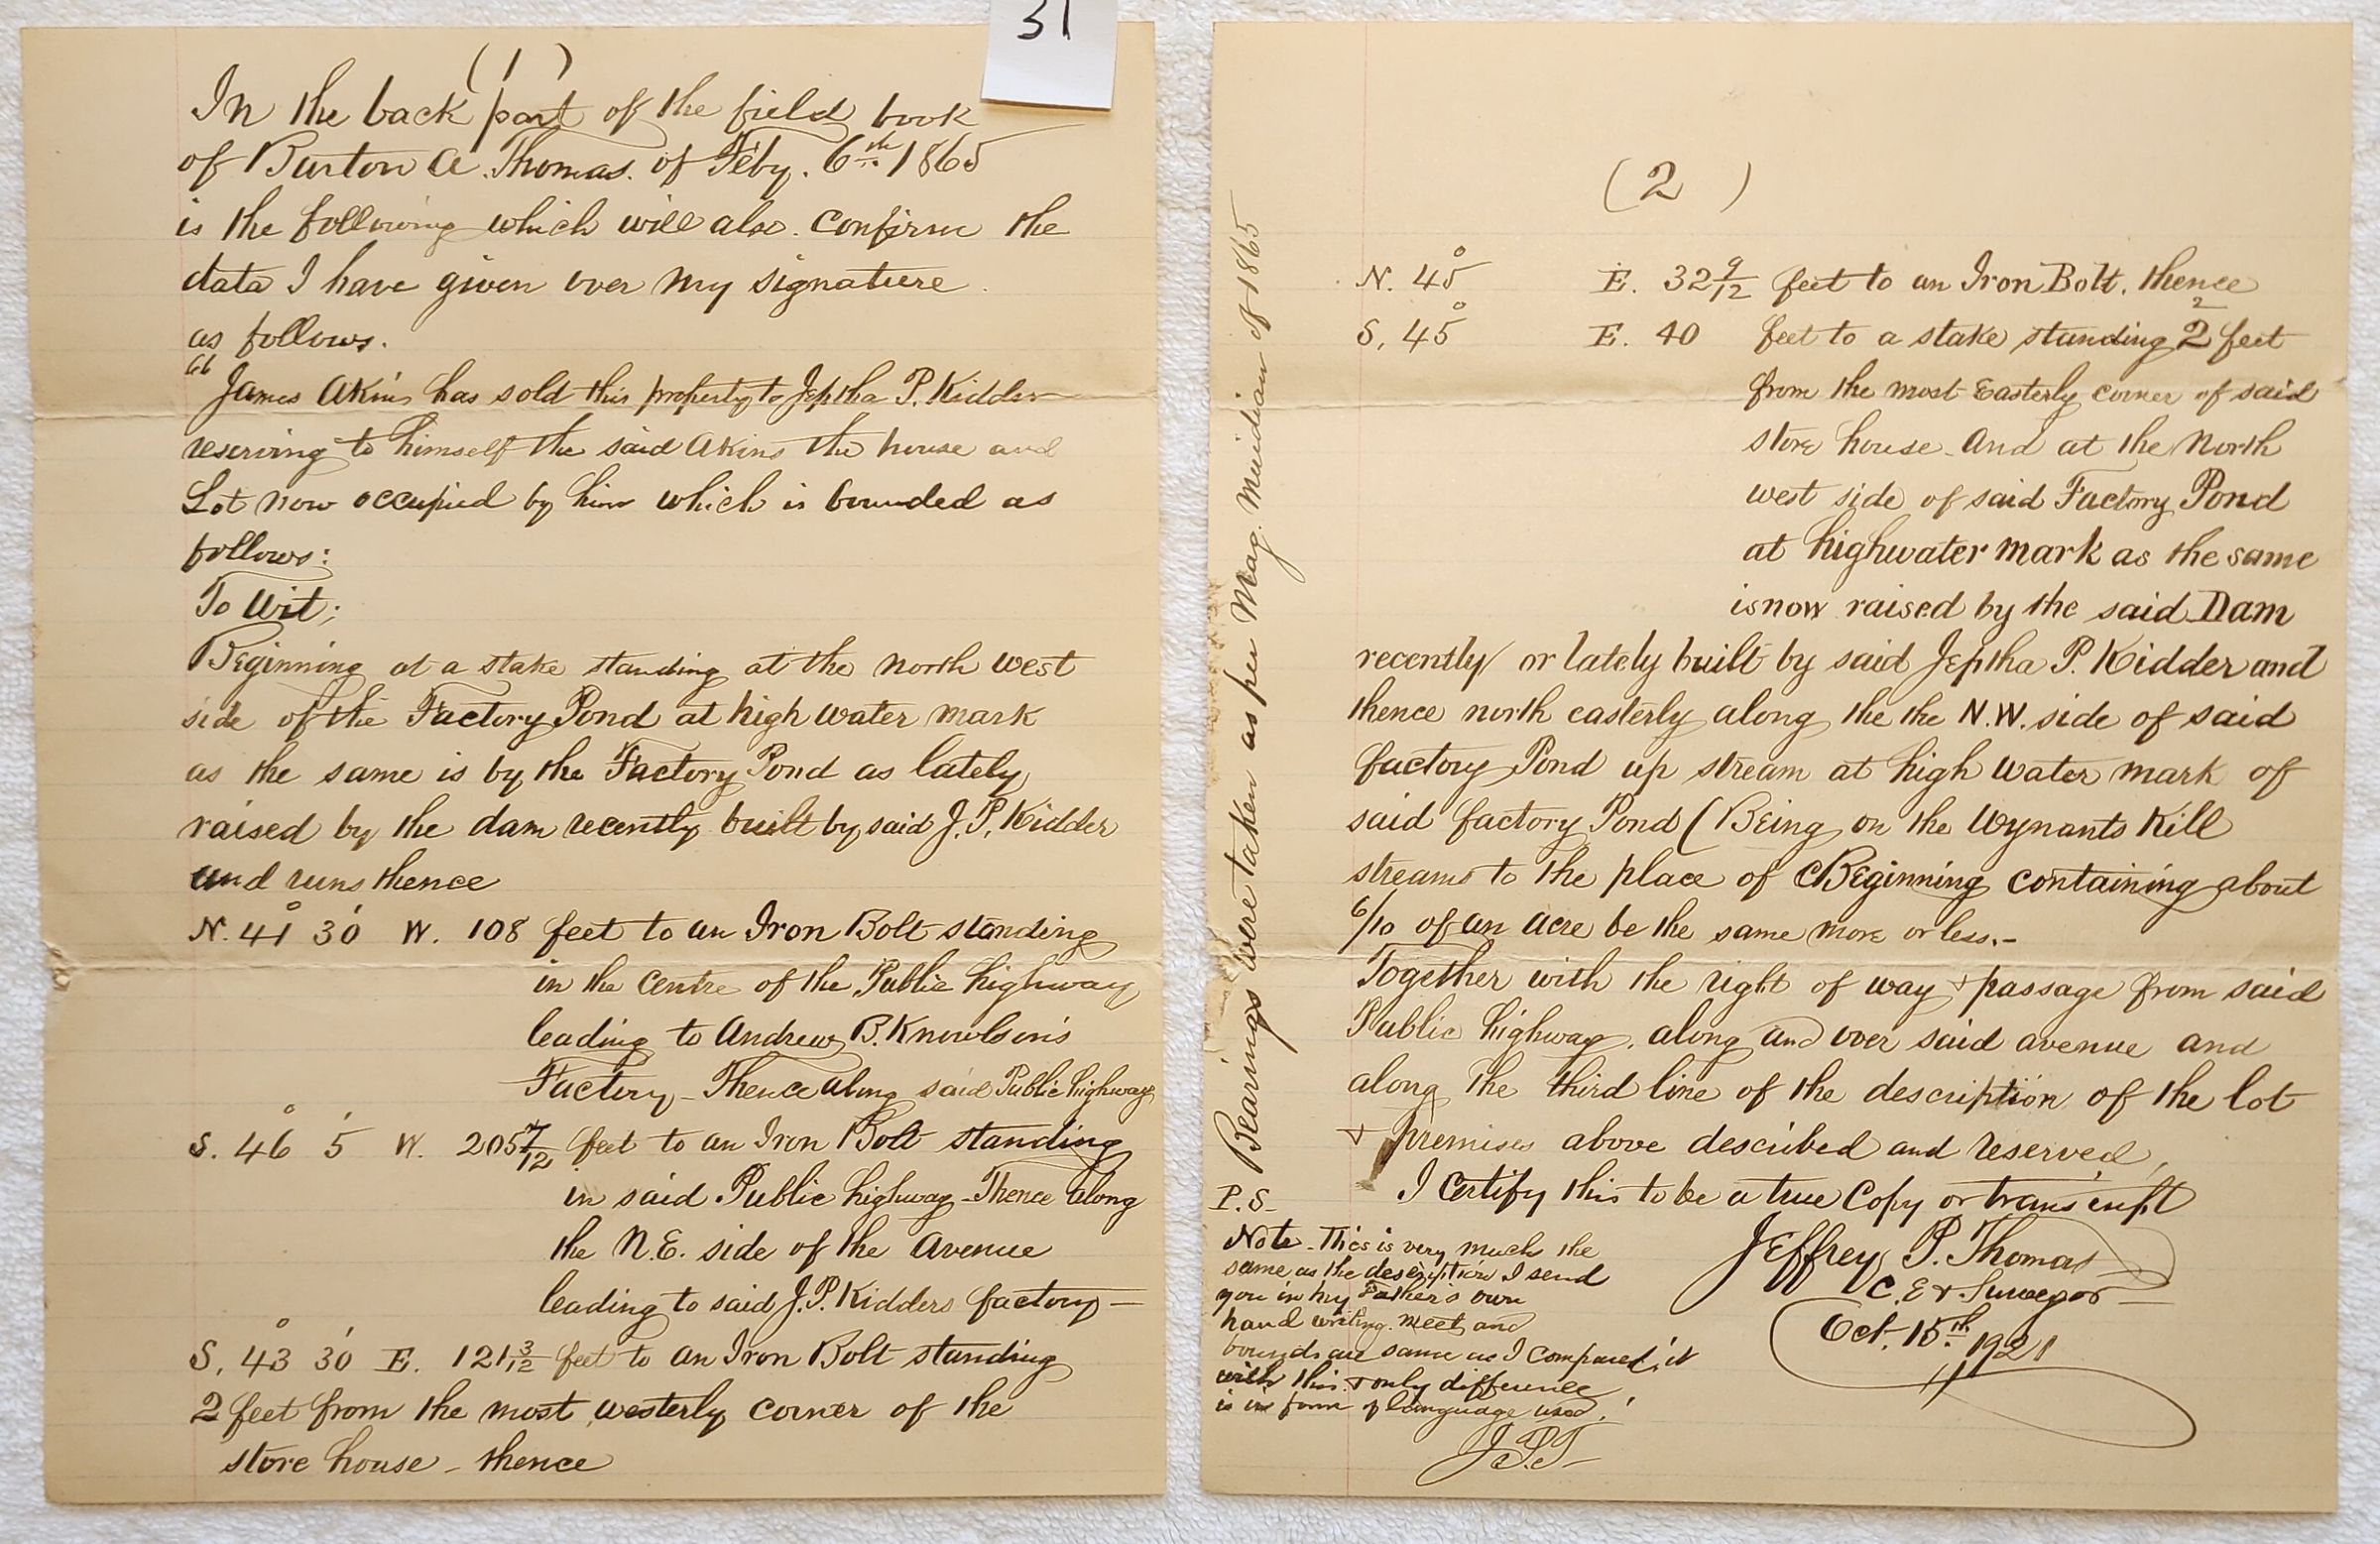 31
(1)
In the back part of the field book
of Burton A. Thomas. of Feby. 6th 1865
is the following which will also. confirm the
data I have given over my signature.
as follows.
"James Akins has sold this property to Jeptha P. Kidder
reserving to himself the said Akins the house and
Lot now occupied by him which is bounded as
follows:
To Wit;
Beginning at a stake standing at the north west
side of the Factory Pond at high water mark
as the same is by the Factory Pond as lately
raised by the dam recently built by said J. P. Kidder
and runs thence
N. 41° 30' W. 108 feet to an Iron Bolt standing
in the Centre of the Public highway
leading to Andrew B. Knowlson's
Factory - Thence along said Public highway
S. 46° 5' W. 205 7/12 feet to an Iron Bolt standing
in said Public highway - Thence along
the N.E. side of the Avenue
leading to said J. P. Kidders factory -
S. 43° 30' E. 121 3/12 feet to an Iron Bolt standing
2 feet from the most westerly corner of the
store house - thence
(2)
N. 45° E. 32 9/12 feet to an Iron Bolt, thence
S. 45° E. 40 feet to a stake standing 2 2 feet
from the most Easterly corner of said
store house and at the North
west side of said Factory Pond
at highwater mark as the same
is now raised by the said Dam
recently or lately built by said Jeptha P. Kidder and
thence north easterly along the the N.W. side of said
factory Pond up stream at high water mark of
said factory Pond (Being on the Wynants Kill
streams to the place of Beginning containing about
6/10 of an acre be the same more or less.-
Together with the right of way & passage from said
Public highway, along and over said avenue and
along the third line of the description of the lot
& premises above described and reserved,
I certify this to be a true Copy or transcript
Jeffrey P. Thomas
C.E. & Surveyor
Oct. 15th 1921
P.S.
Note - This is very much the
same as the description I send
you in my Father's own
hand writing. meets and
bounds are same as I compared it
with this & only difference
is in form of language used.
J.P.T
Bearings were taken as per Mag. Meridian of 1865